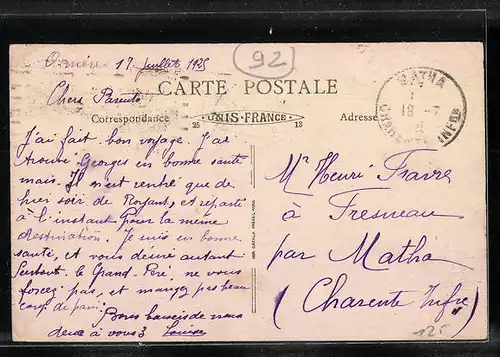 17 juillet 1925
92
Chers Parents
CARTE POSTALE
Correspondance
25 UNIS-FRANCE 13
Adresse
MATHA
18 - 7
CHARENTE INFRE
J'ai fait bon voyage. J'ai
trouvé Georges en bonne santé
mais. Il n'est rentré que de
hier soir de Royan, et reparti
à l'instant pour la même
destination. Je suis en bonne
santé, et vous désire autant
Surtout le Grand-Père, ne vous
forcez pas, et mangez pas beau
coup de
Bons baisers de nous
deux à vous 3 Louise
Mr Henri Favre
à Fresneau
par Matha
(Charente Infre)
125